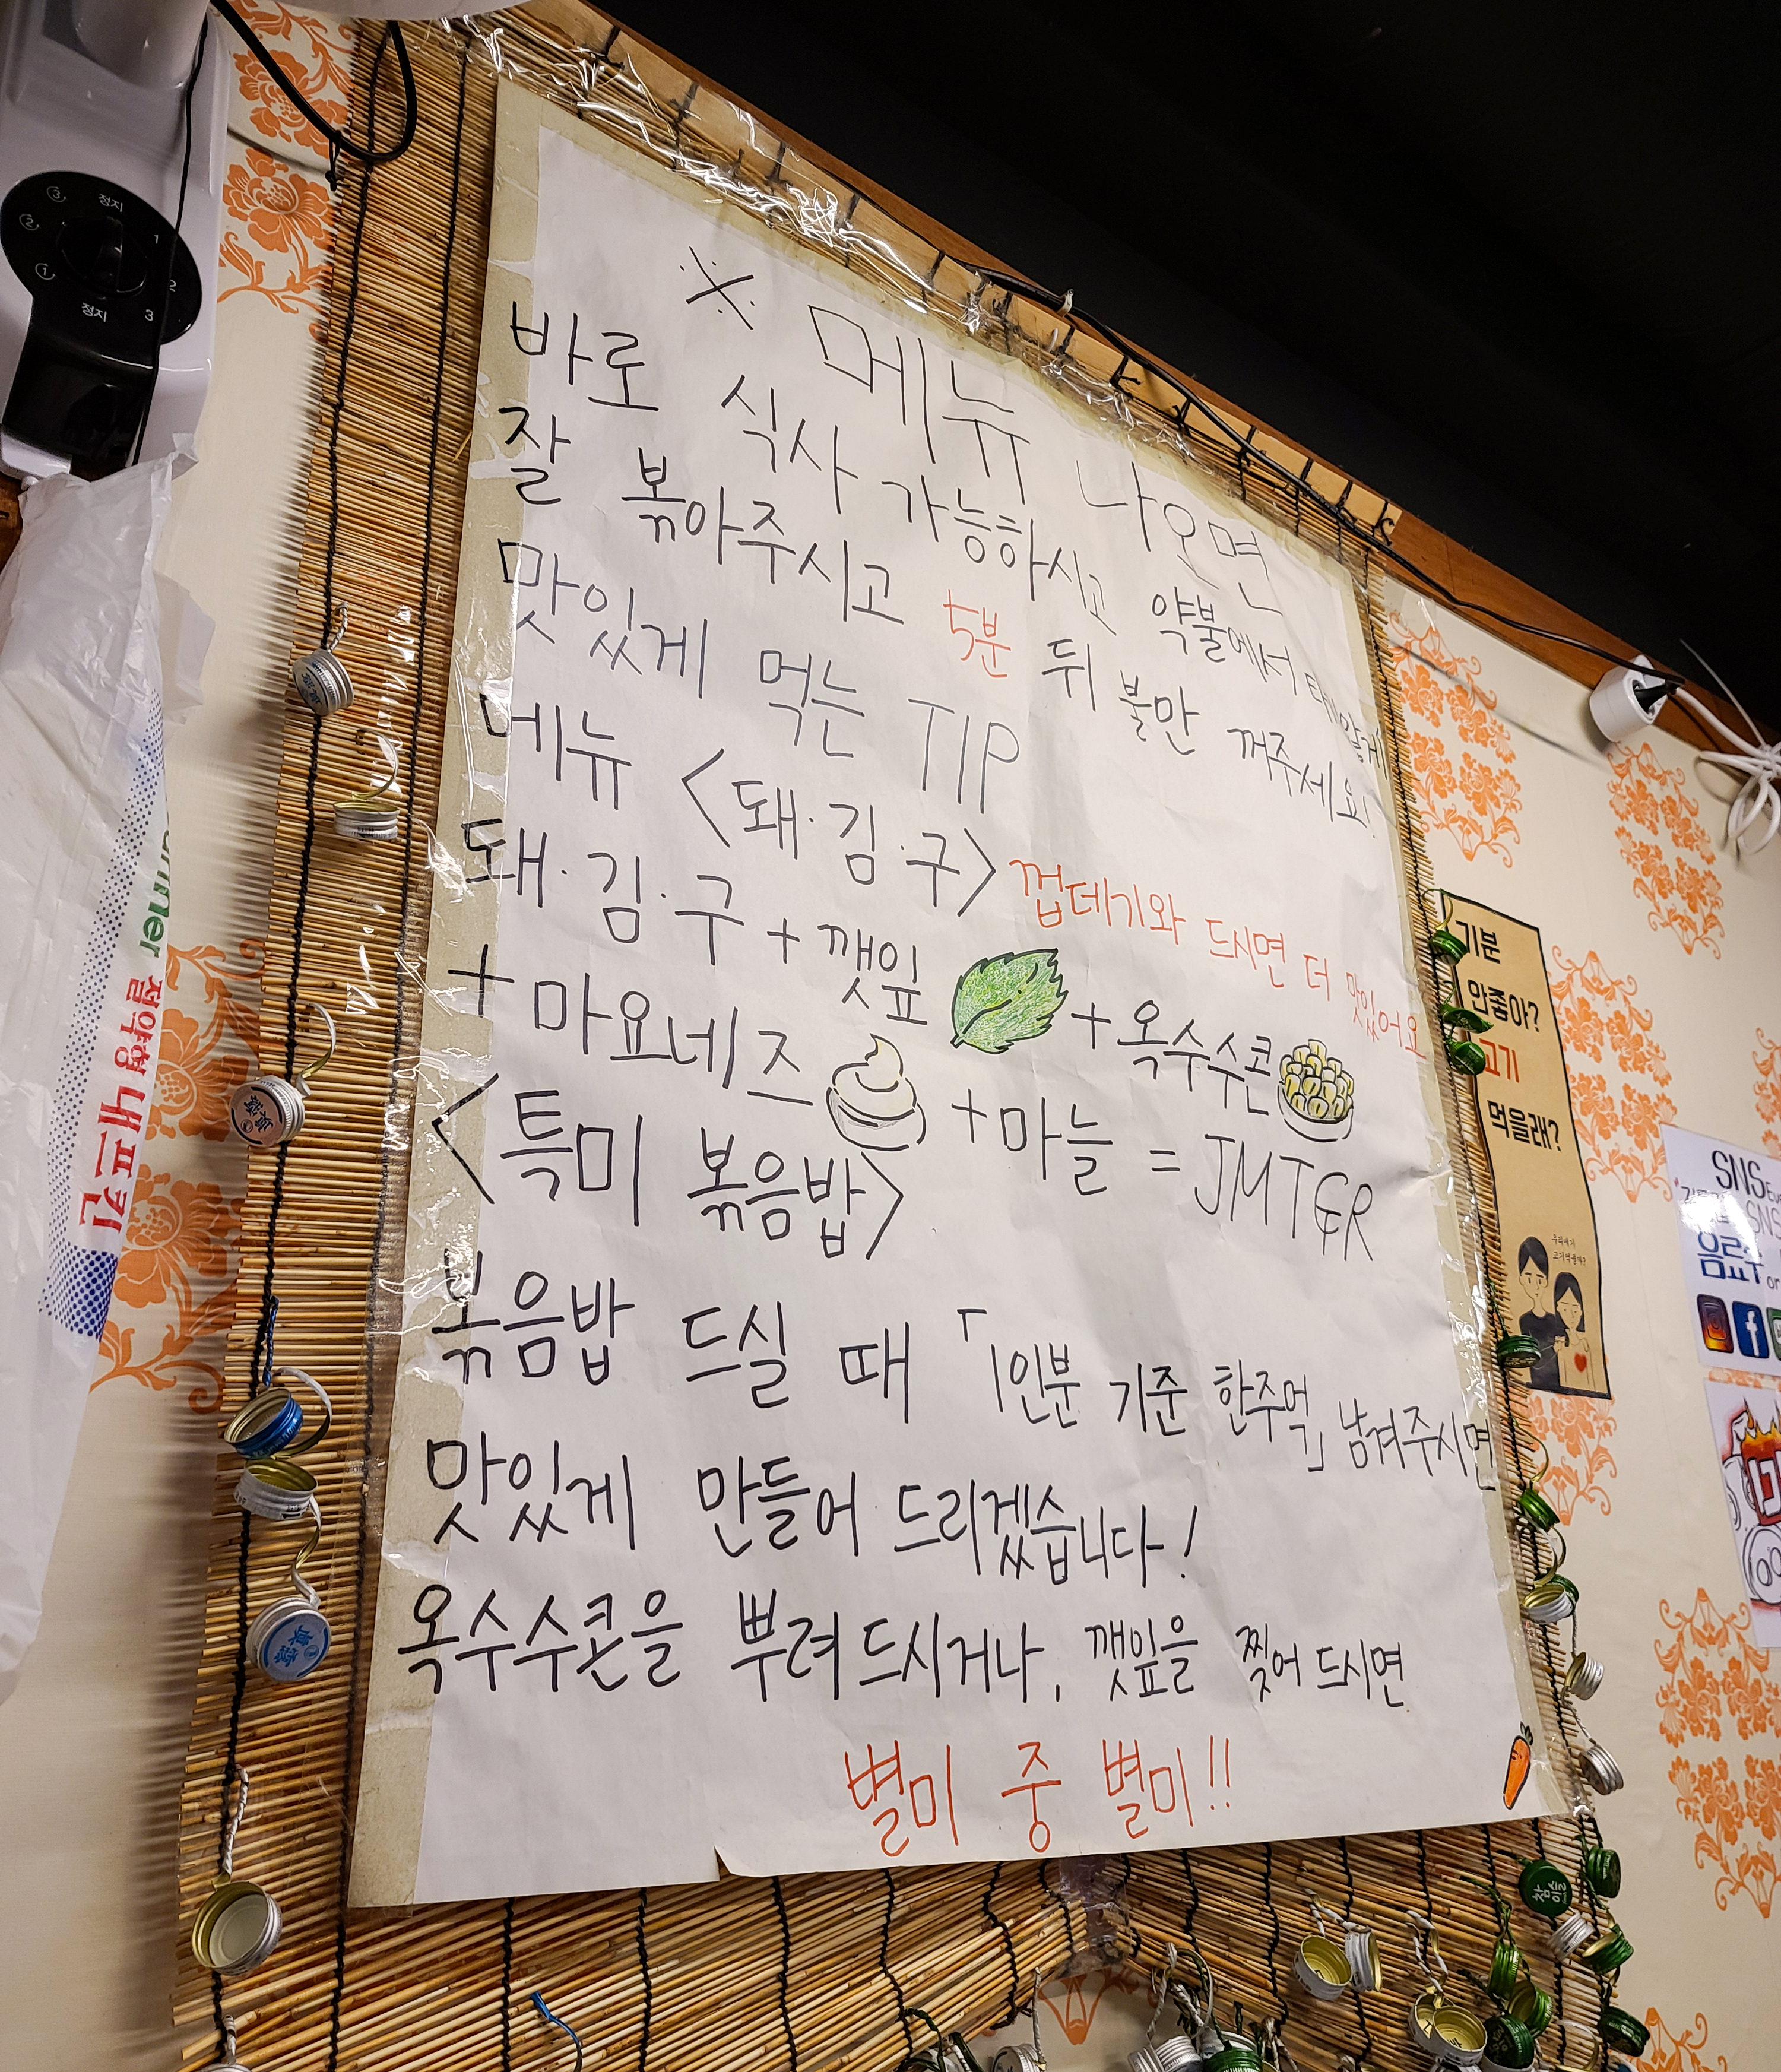 ※ 메뉴 나오면
바로 식사 가능하시고 약불에서 타지 않게
잘 볶아주시고 5분 뒤 불만 꺼주세요!
맛있게 먹는 TIP
메뉴 <돼·김·구> 껍데기와 드시면 더 맛있어요
돼·김·구 + 깻잎 + 옥수수콘
+ 마요네즈 + 마늘 = JMTGR
<특미 볶음밥>
볶음밥 드실 때 「1인분 기준 한주먹」 남겨주시면
맛있게 만들어 드리겠습니다!
옥수수콘을 뿌려 드시거나, 깻잎을 찢어 드시면
별미 중 별미!!
기분
안좋아?
고기
먹을래?
SNS
SNS
음료수 or
정지
1
2
3
정지
①
②
③
절약형 내프킨
참이슬